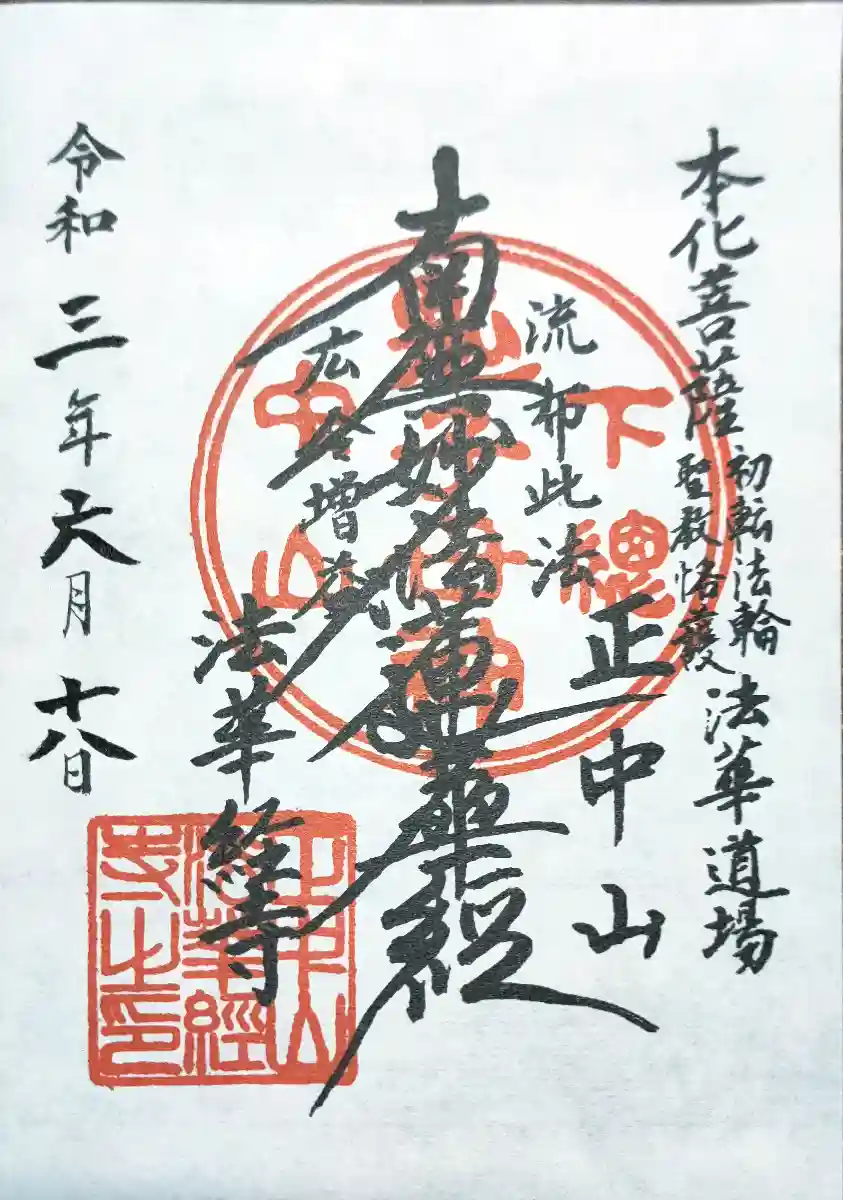 本化菩薩
初転法輪
聖教恪護
法華道場
正中山
流布此法
南無妙法蓮華経
広令増益
法華経寺
令和三年六月十八日
下總
中山
正中山
法華經
寺之印